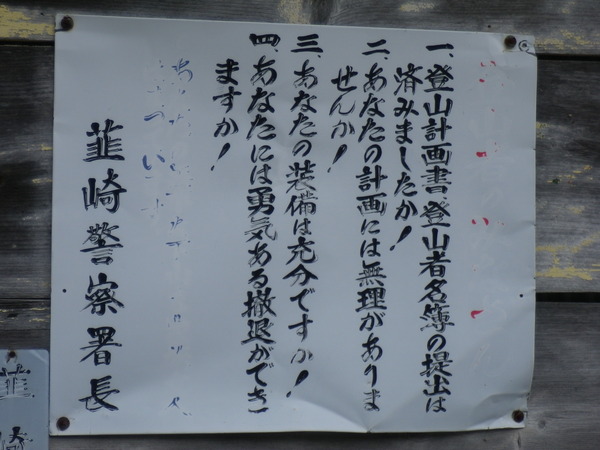 一、登山計画書、登山者名簿の提出は
済みましたか!
二、あなたの計画には無理がありま
せんか!
三、あなたの装備は充分ですか!
四、あなたには勇気ある撤退ができ
ますか!
韮崎警察署長
韮崎